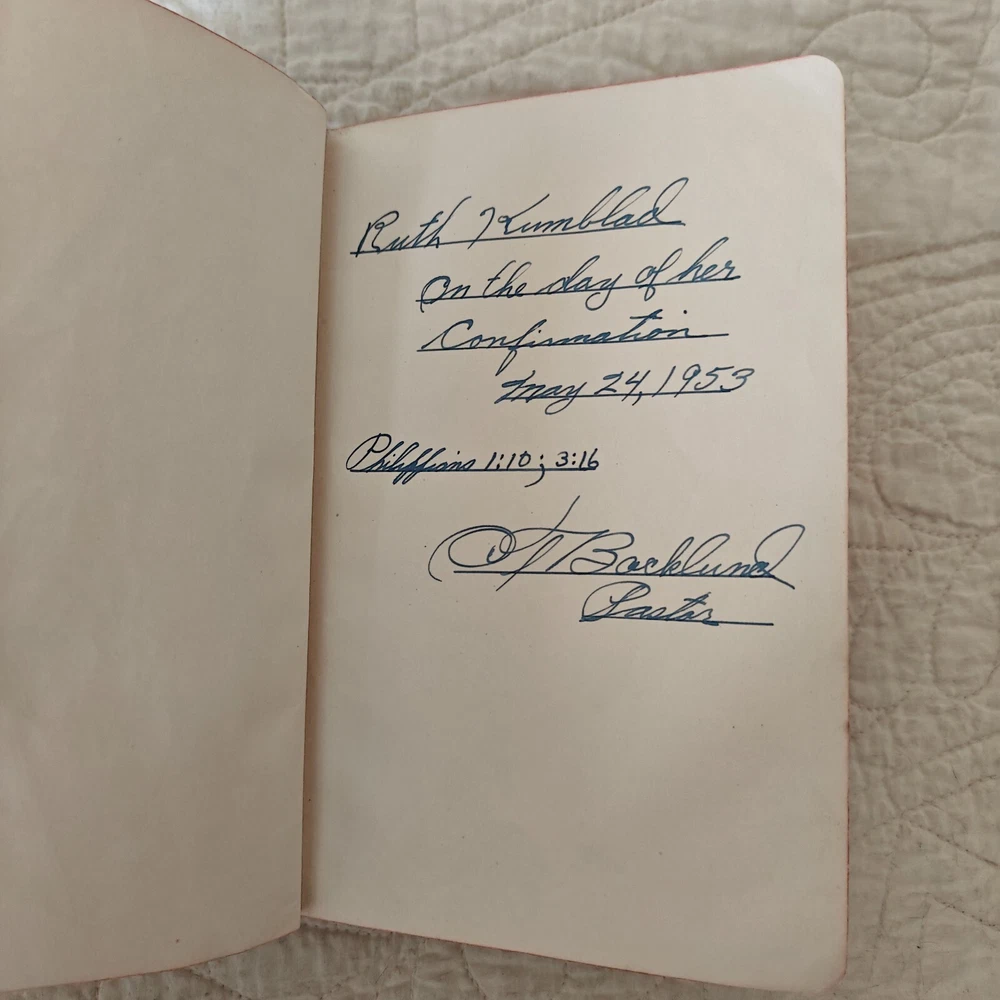 Ruth Kumblad
On the day of her
Confirmation
May 24, 1953
Philippians 1:10; 3:16
Backlund
Pastor